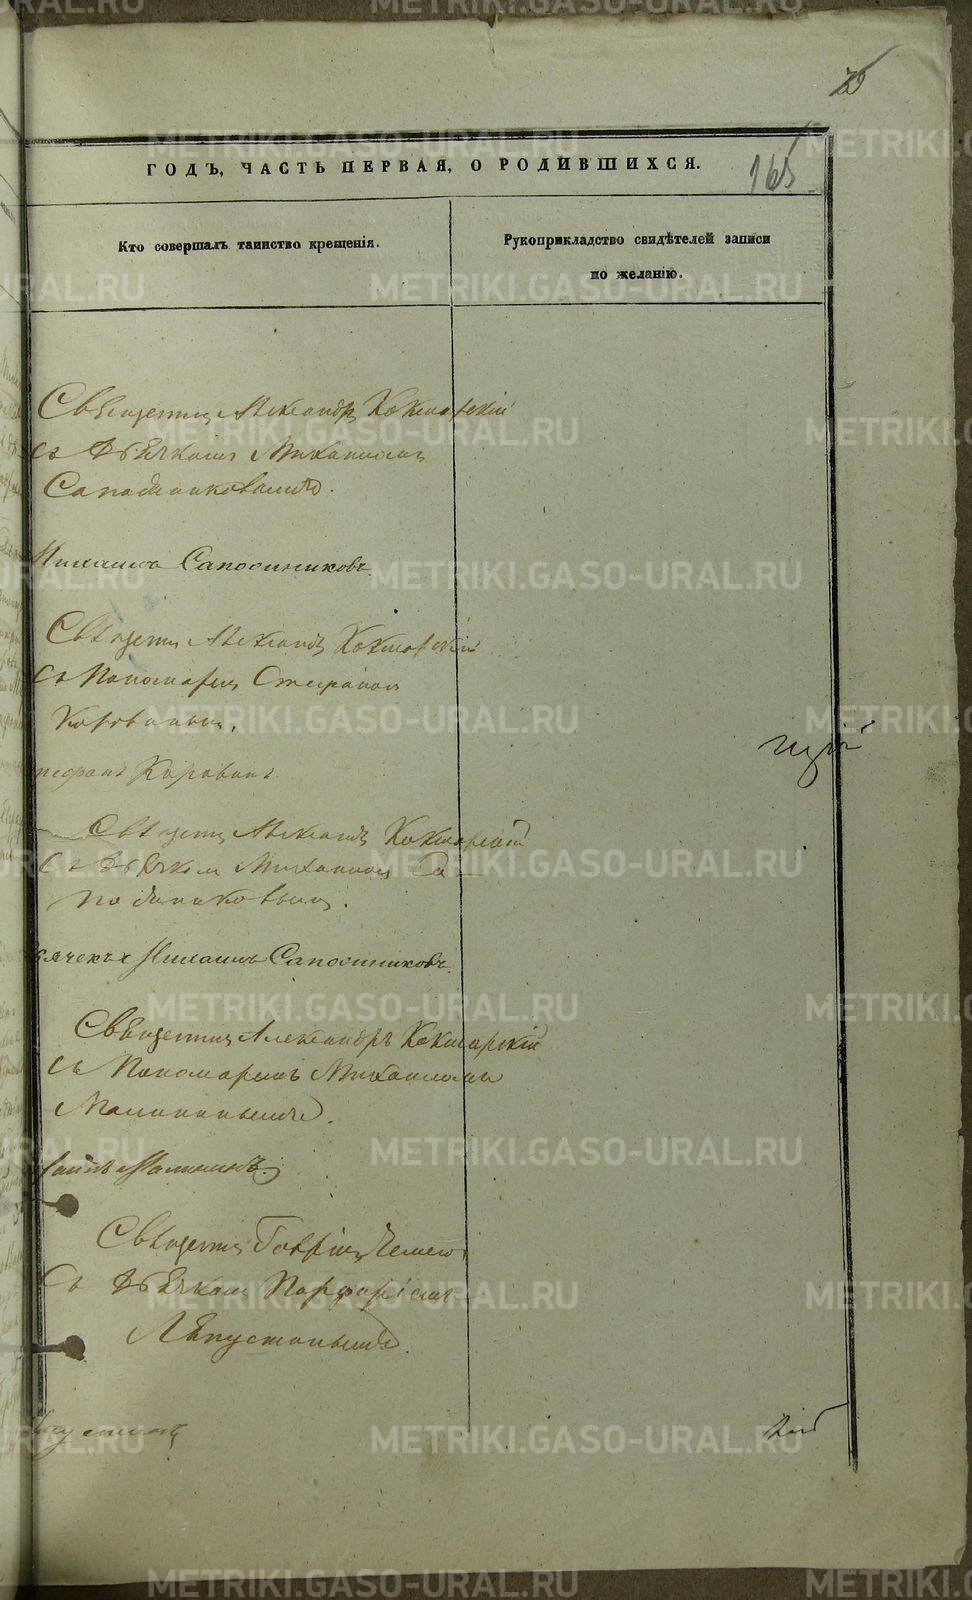 165
ГОДЪ, ЧАСТЬ ПЕРВАЯ, О РОДИВШИХСЯ.
Кто совершалъ таинство крещенія.
Рукоприкладство свидѣтелей записи
по желанію.
Священникъ Александръ Кокшарскій
съ Дьячкомъ Михаиломъ
Сапожниковымъ.
Михаилъ Сапожниковъ
Священ Александръ Кокшарскій
съ Пономаремъ Стефаномъ
Коровинымъ.
Коровинъ
Священ Александръ Кокшарскій
съ Дьячкомъ Михаиломъ Са
пожниковымъ.
Михаилъ Сапожниковъ
Священникъ Александръ Кокшарскій
съ Пономаремъ Михаиломъ
Малининымъ.
Малининъ
Священникъ Гавріилъ
Съ Дьячкомъ Порфиріемъ
METRIKI.GASO-URAL.RU